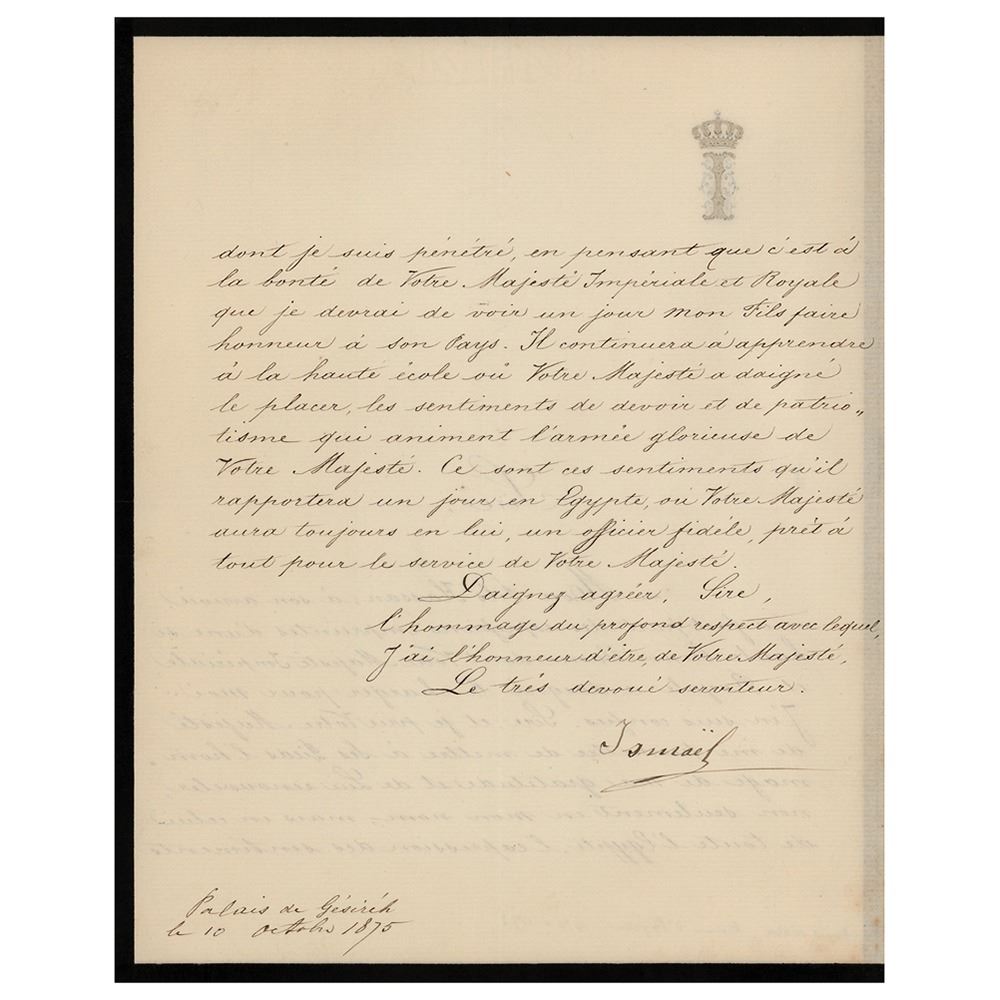 dont je suis pénétré, en pensant que c'est à
la bonté de Votre Majesté Impériale et Royale
que je devrai de voir un jour mon Fils faire
honneur à son Pays. Il continuera à apprendre
à la haute école où Votre Majesté a daigné
le placer, les sentiments de devoir et de patrio„
tisme qui animent l'armée glorieuse de
Votre Majesté. Ce sont ces sentiments qu'il
rapportera un jour en Egypte, où Votre Majesté
aura toujours en lui, un officier fidéle, prêt à
tout pour le service de Votre Majesté.
Daignez agréer, Sire,
l'hommage du profond respect avec lequel,
J'ai l'honneur d'être, de Votre Majesté,
Le trés devoué serviteur.
Ismaël
Palais de Gésiréh
le 10 octobre 1875